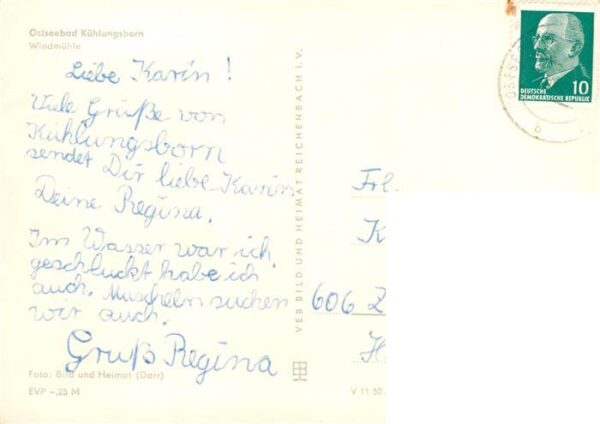 Ostseebad Kühlungsborn
Windmühle
Liebe Karin!
Viele Grüße von
Kühlungsborn
sendet Dir liebe Karin
Deine Regina.
Im Wasser war ich,
geschluckt habe ich
auch. Muscheln suchen
wir auch.
Gruß Regina
Foto: Bild und Heimat (Darr)
EVP –,25 M
VEB BILD UND HEIMAT REICHENBACH I. V.
V 11 50
DEUTSCHE
DEMOKRATISCHE REPUBLIK
10
Frl.
K
606 Z
H